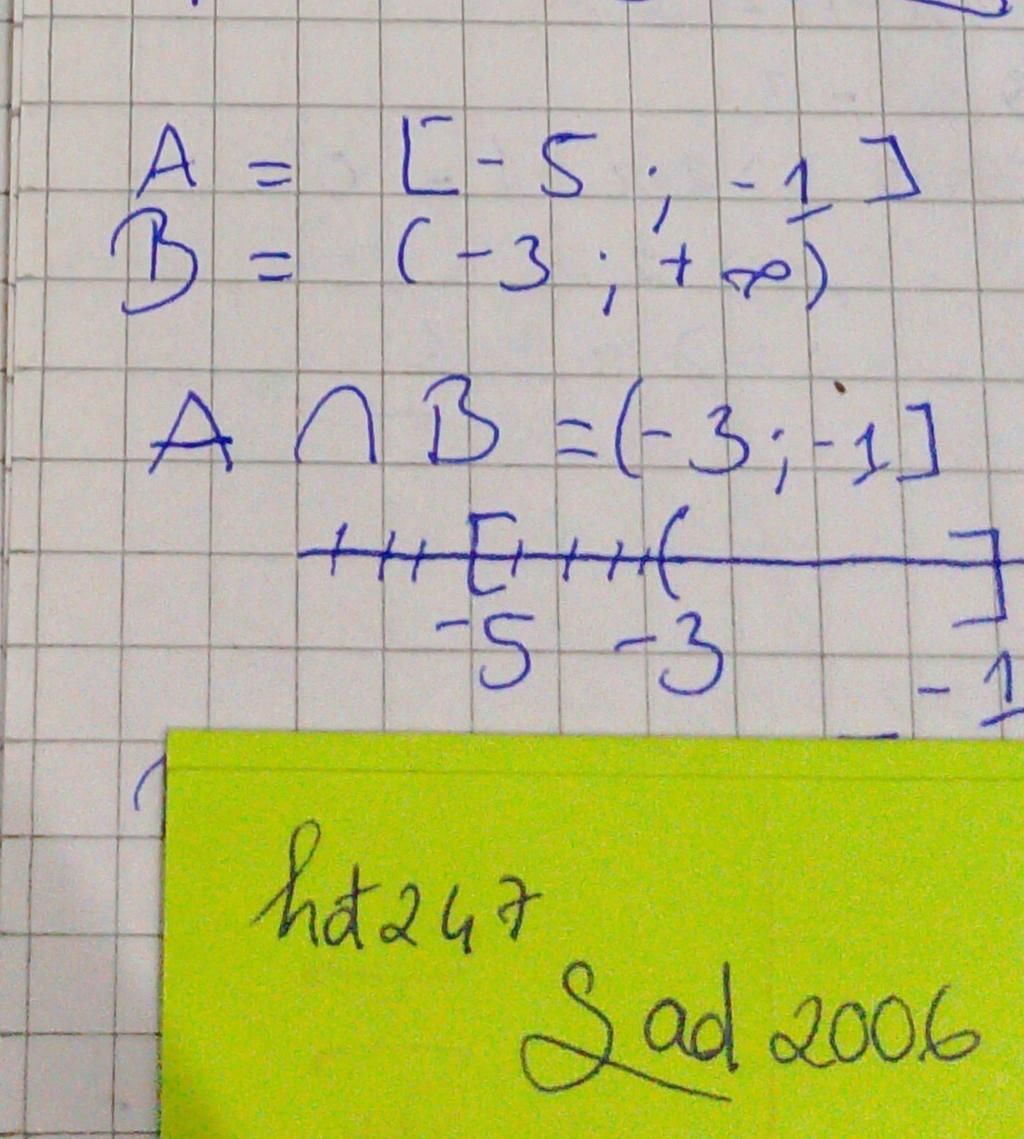 A = [-5 ; -1]
B = (-3 ; +∞)
A ∩ B = (-3 ; -1]
[ ( ]
-5 -3 -1
hdt247
Sad 2006